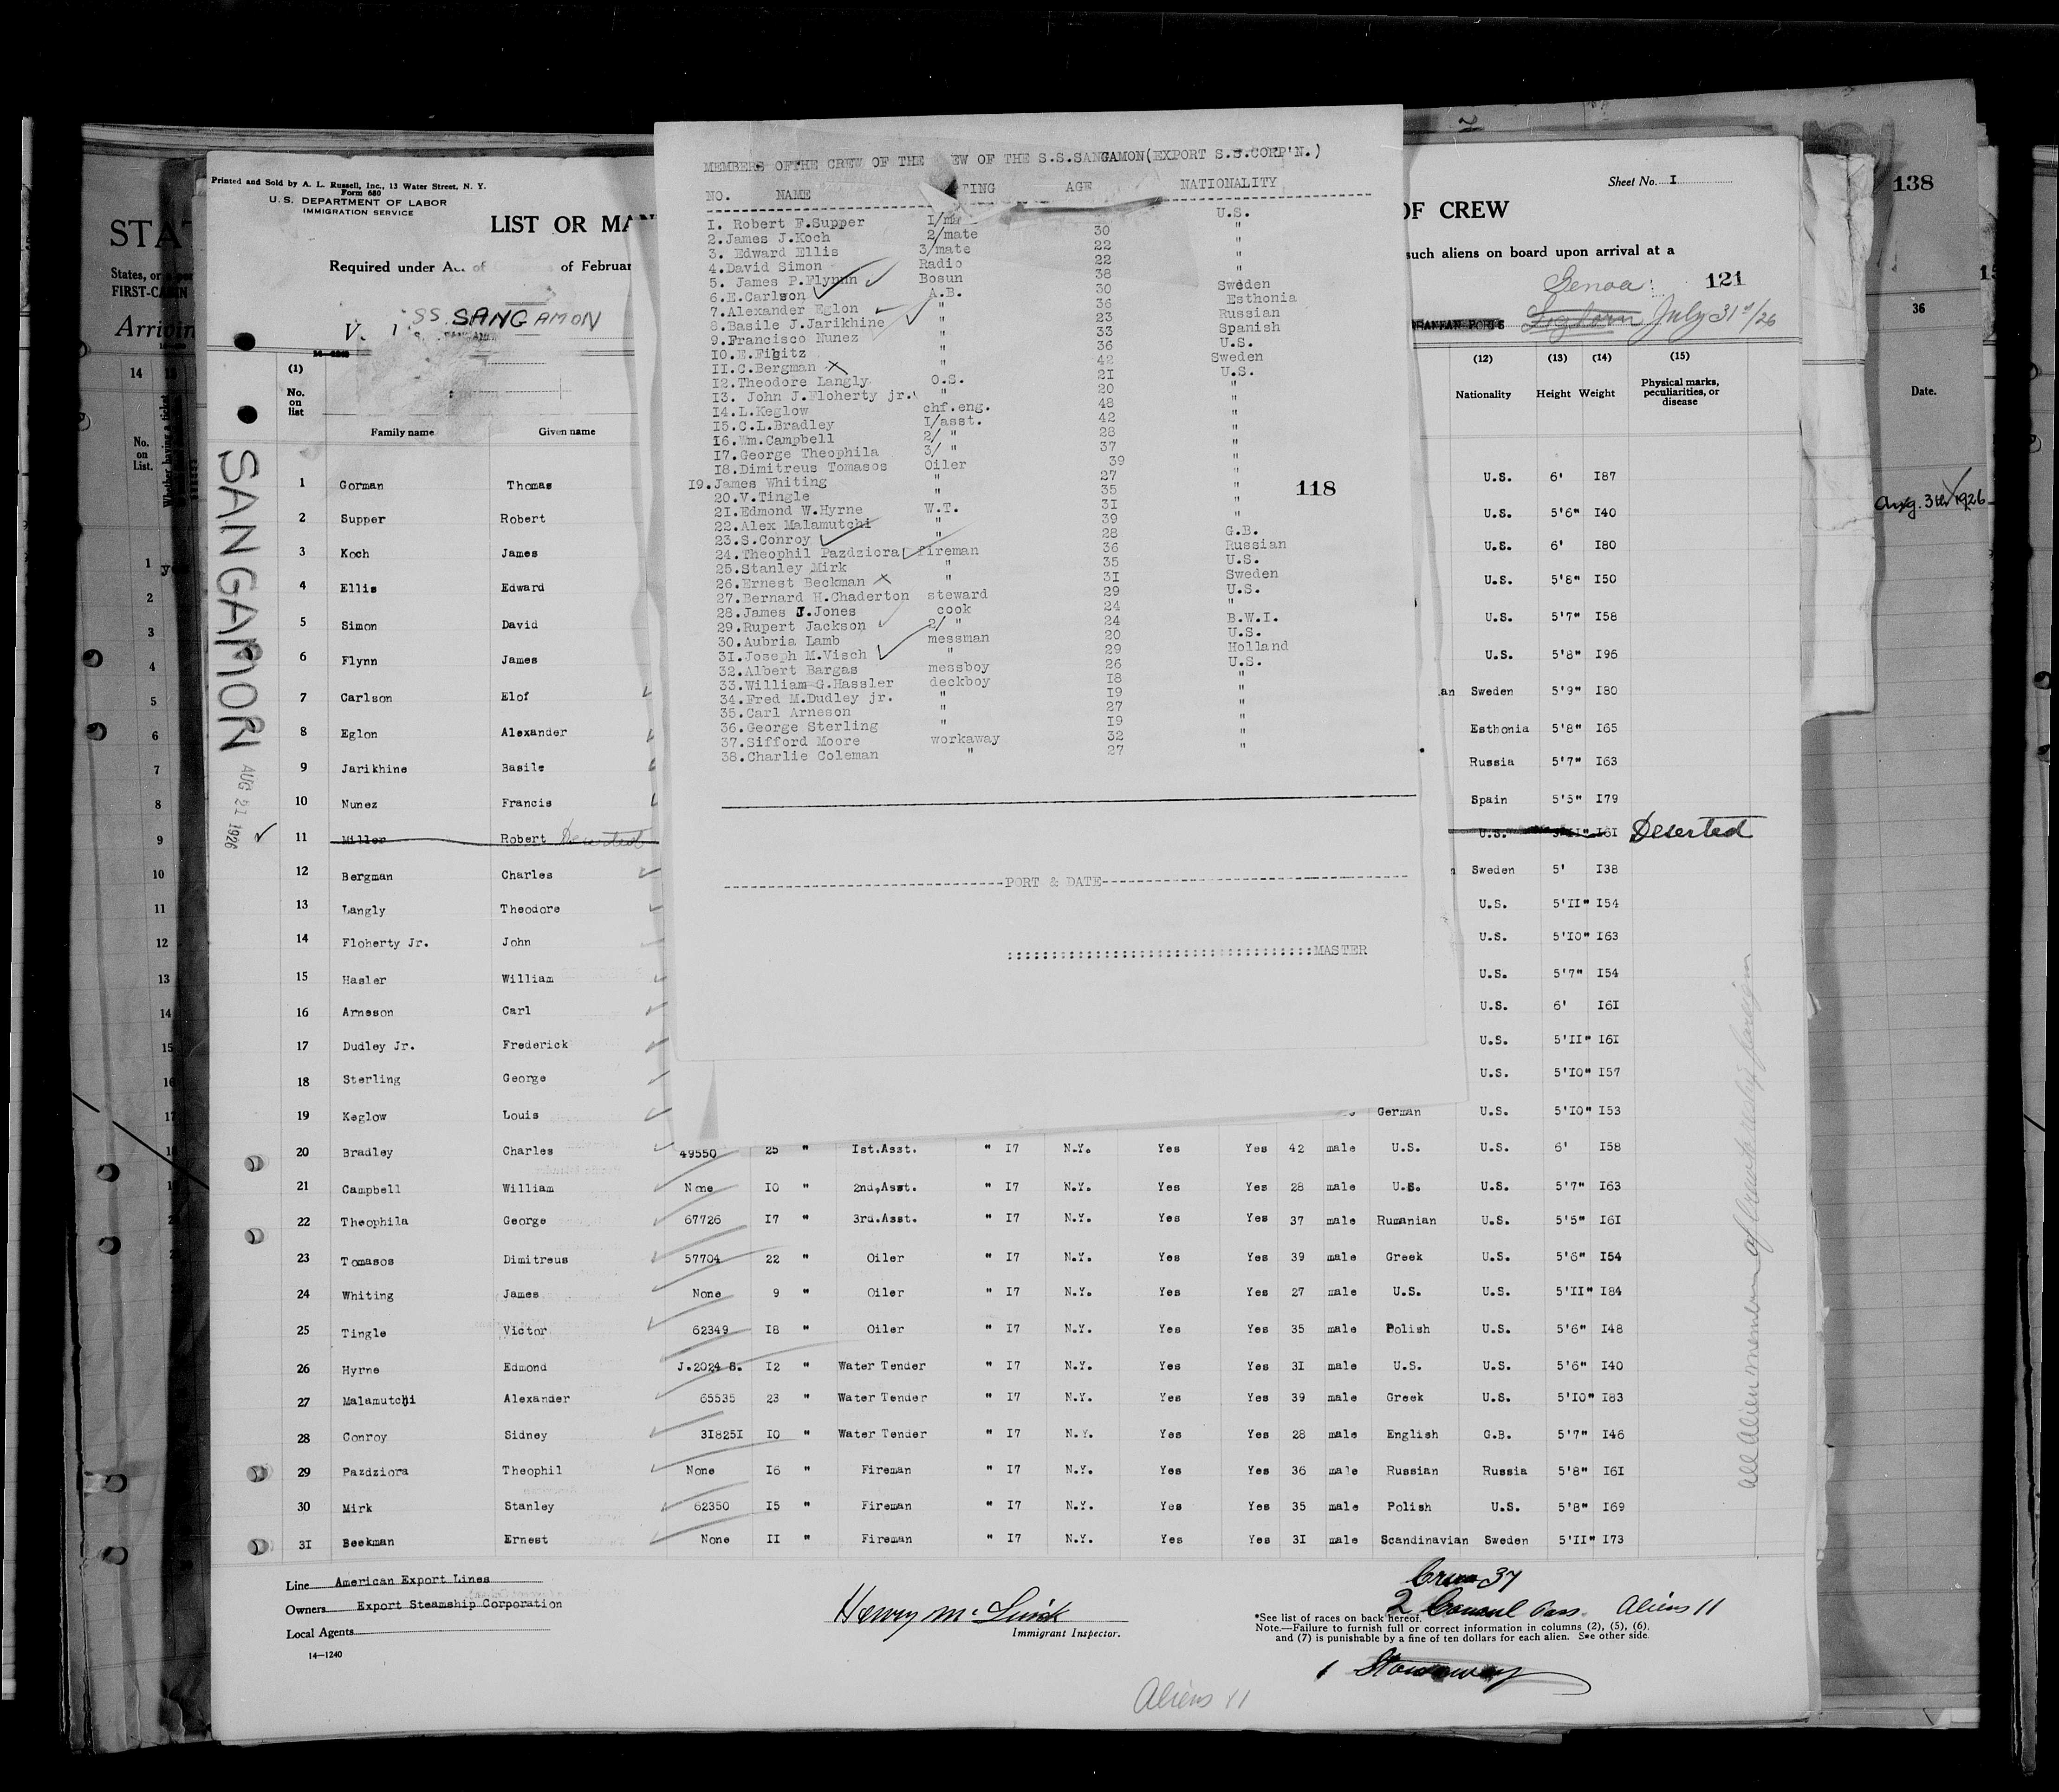 Printed and Sold by A. L. Russell, Inc., 13 Water Street, N. Y.
Form 680
U.S. DEPARTMENT OF LABOR
IMMIGRATION SERVICE
LIST OR MA
OF CREW
Sheet No. I
Required under Ac of of Februar
such aliens on board upon arrival at a
SS. SANGAMON
Genoa
121
Leghorn July 31st/26
SANGAMON AUG 21 1926
(1)
No. on list
Family name Given name
(12) (13) (14) (15)
Nationality Height Weight Physical marks, peculiarities, or disease
MEMBERS OFTHE CREW OF THE EW OF THE S.S.SANGAMON(EXPORT S.S.CORP'N.)
NO. NAME TING AGE NATIONALITY
I. Robert F.Supper I/ma U.S.
2.James J.Koch 2/mate 30 "
3. Edward Ellis 3/mate 22 "
4.David Simon Radio 22 "
5. James P.Flynnn Bosun 38 "
6.E.Carlson A.B. 30 Sweden
7.Alexander Eglon " 36 Esthonia
8.Basile J.Jarikhine " 23 Russian
9.Francisco Nunez " 33 Spanish
IO.E.Figitz " 36 U.S.
II.C.Bergman " 42 Sweden
I2.Theodore Langly O.S. 2I U.S.
I3. John J.Floherty jr. " 20 "
I4.L.Keglow chf.eng. 48 "
I5.C.L.Bradley I/asst. 42 "
I6.Wm.Campbell 2/ " 28 "
I7.George Theophila 3/ " 37 "
I8.Dimitreus Tomasos Oiler 39 "
I9.James Whiting " 27 "
20.V.Tingle " 35 "
2I.Edmond W.Hyrne W.T. 3I "
22.Alex Malamutchi " 39 "
23.S.Conroy " 28 G.B.
24.Theophil Pazdziora fireman 36 Russian
25.Stanley Mirk " 35 U.S.
26.Ernest Beckman " 3I Sweden
27.Bernard H.Chaderton steward 29 U.S.
28.James J.Jones cook 24 "
29.Rupert Jackson 2/ " 24 B.W.I.
30.Aubria Lamb messman 20 U.S.
3I.Joseph M.Visch " 29 Holland
32.Albert Bargas messboy 26 U.S.
33.William G.Hassler deckboy I8 "
34.Fred M.Dudley jr. " I9 "
35.Carl Arneson " 27 "
36.George Sterling " I9 "
37.Sifford Moore workaway 32 "
38.Charlie Coleman " 27 "
118
PORT & DATE
MASTER
1 Gorman Thomas U.S. 6' I87
2 Supper Robert U.S. 5'6" I40
3 Koch James U.S. 6' I80
4 Ellis Edward U.S. 5'8" I50
5 Simon David U.S. 5'7" I58
6 Flynn James U.S. 5'8" I96
7 Carlson Elof an Sweden 5'9" I80
8 Eglon Alexander Esthonia 5'8" I65
9 Jarikhine Basile Russia 5'7" I63
10 Nunez Francis Spain 5'5" I79
11 Miller Robert Deserted U.S. I6I Deserted
12 Bergman Charles Sweden 5' I38
13 Langly Theodore U.S. 5'II" I54
14 Floherty Jr. John U.S. 5'IO" I63
15 Hasler William U.S. 5'7" I54
16 Arneson Carl U.S. 6' I6I
17 Dudley Jr. Frederick U.S. 5'II" I6I
18 Sterling George U.S. 5'IO" I57
19 Keglow Louis German U.S. 5'IO" I53
20 Bradley Charles 49550 25 " Ist.Asst. " I7 N.Y. Yes Yes 42 male U.S. U.S. 6' I58
21 Campbell William None IO " 2nd.Asst. " I7 N.Y. Yes Yes 28 male U.S. U.S. 5'7" I63
22 Theophila George 67726 I7 " 3rd.Asst. " I7 N.Y. Yes Yes 37 male Rumanian U.S. 5'5" I6I
23 Tomasos Dimitreus 57704 22 " Oiler " I7 N.Y. Yes Yes 39 male Greek U.S. 5'6" I54
24 Whiting James None 9 " Oiler " I7 N.Y. Yes Yes 27 male U.S. U.S. 5'II" I84
25 Tingle Victor 62349 I8 " Oiler " I7 N.Y. Yes Yes 35 male Polish U.S. 5'6" I48
26 Hyrne Edmond J.2024 8. I2 " Water Tender " I7 N.Y. Yes Yes 3I male U.S. U.S. 5'6" I40
27 Malamutchi Alexander 65535 23 " Water Tender " I7 N.Y. Yes Yes 39 male Greek U.S. 5'IO" I83
28 Conroy Sidney 3I825I IO " Water Tender " I7 N.Y. Yes Yes 28 male English G.B. 5'7" I46
29 Pazdziora Theophil None I6 " Fireman " I7 N.Y. Yes Yes 36 male Russian Russia 5'8" I6I
30 Mirk Stanley 62350 I5 " Fireman " I7 N.Y. Yes Yes 35 male Polish U.S. 5'8" I69
31 Beekman Ernest None II " Fireman " I7 N.Y. Yes Yes 3I male Scandinavian Sweden 5'II" I73
Line American Export Lines
Owners Export Steamship Corporation
Local Agents
14—1240
Immigrant Inspector.
Crew 37
2 Consul Pass. Aliens 11
*See list of races on back hereof.
Note.—Failure to furnish full or correct information in columns (2), (5), (6), and (7) is punishable by a fine of ten dollars for each alien. See other side.
1 Stowaway
Aliens 11
STAT
States, or a
FIRST-CABIN
Arrivin
14
No. on List.
Whether having a ticket
138
36
Date.
Aug. 3rd 1926